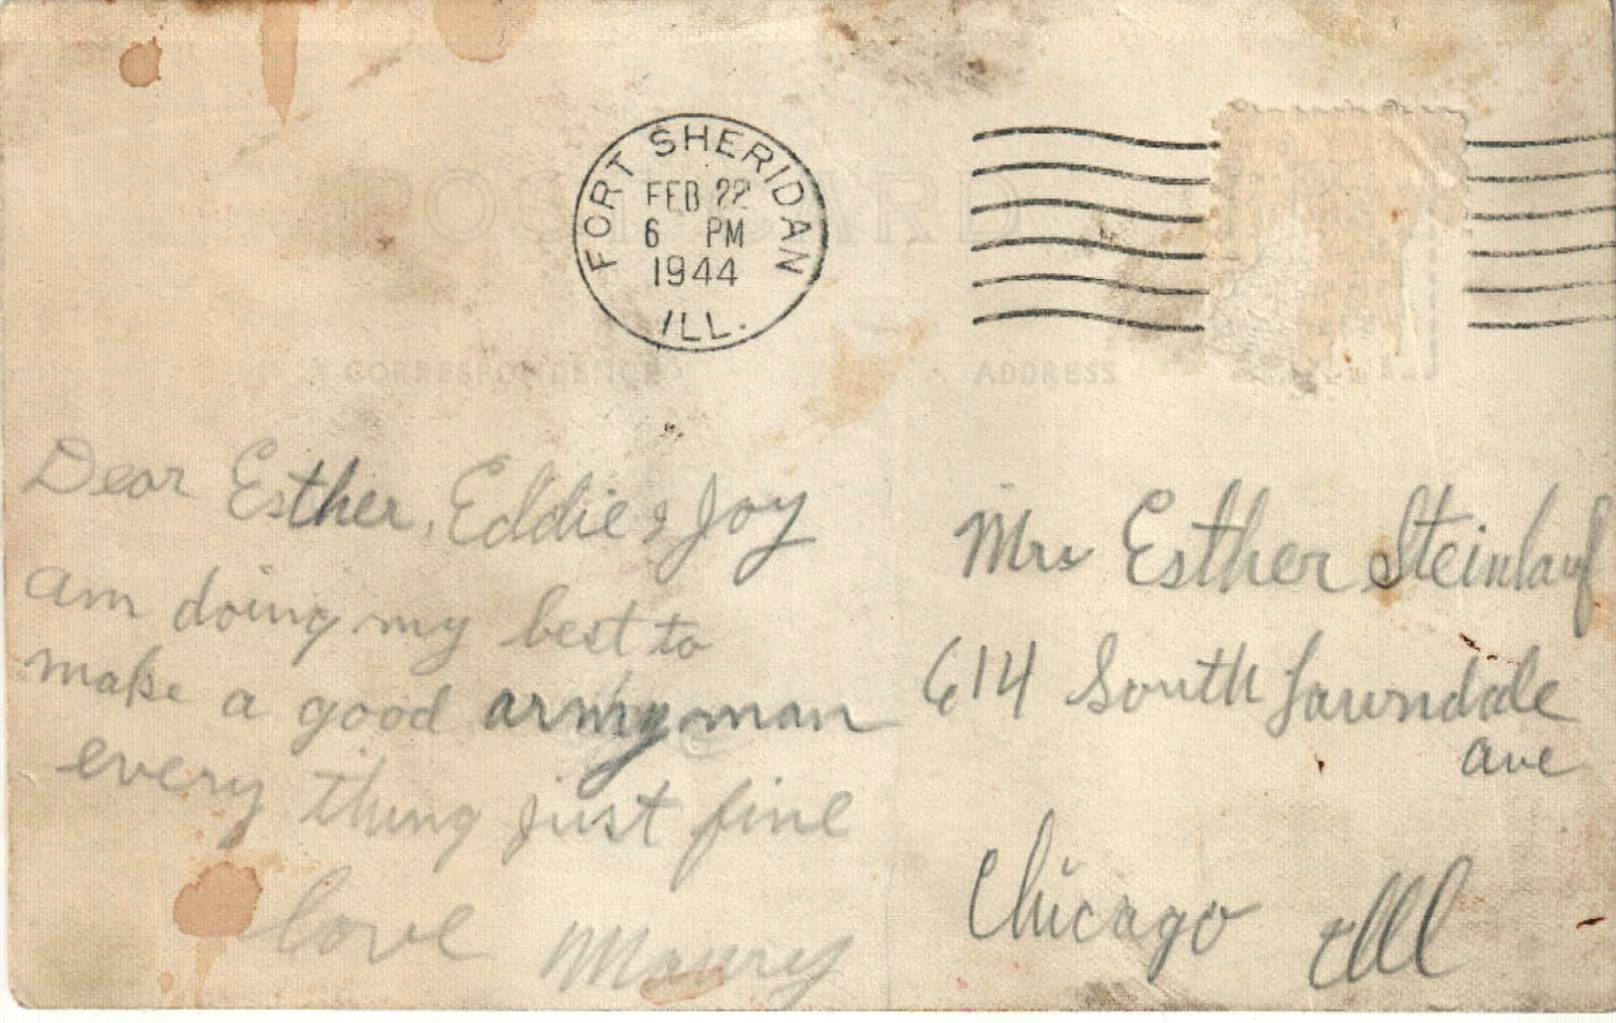 FORT SHERIDAN
FEB 22
6 PM
1944
ILL.
POST CARD
CORRESPONDENCE
ADDRESS
Dear Esther, Eddie & Joy
am doing my best to
make a good army man
every thing just fine
love Maury
Mrs Esther Steinlauf
614 South Lawndale
ave
Chicago Ill